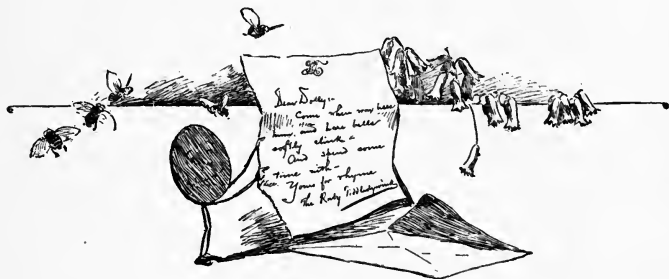 Dear Dolly:-
Come when roses here
hum, and here bells
softly clink -
And spend some
time with -
Yours for rhyme
The Ruby